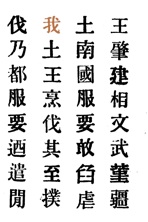 王肇建相文武堇疆
土南國服要敀臽虐
我土王烹伐其至撲
伐乃都服要迺遣閒